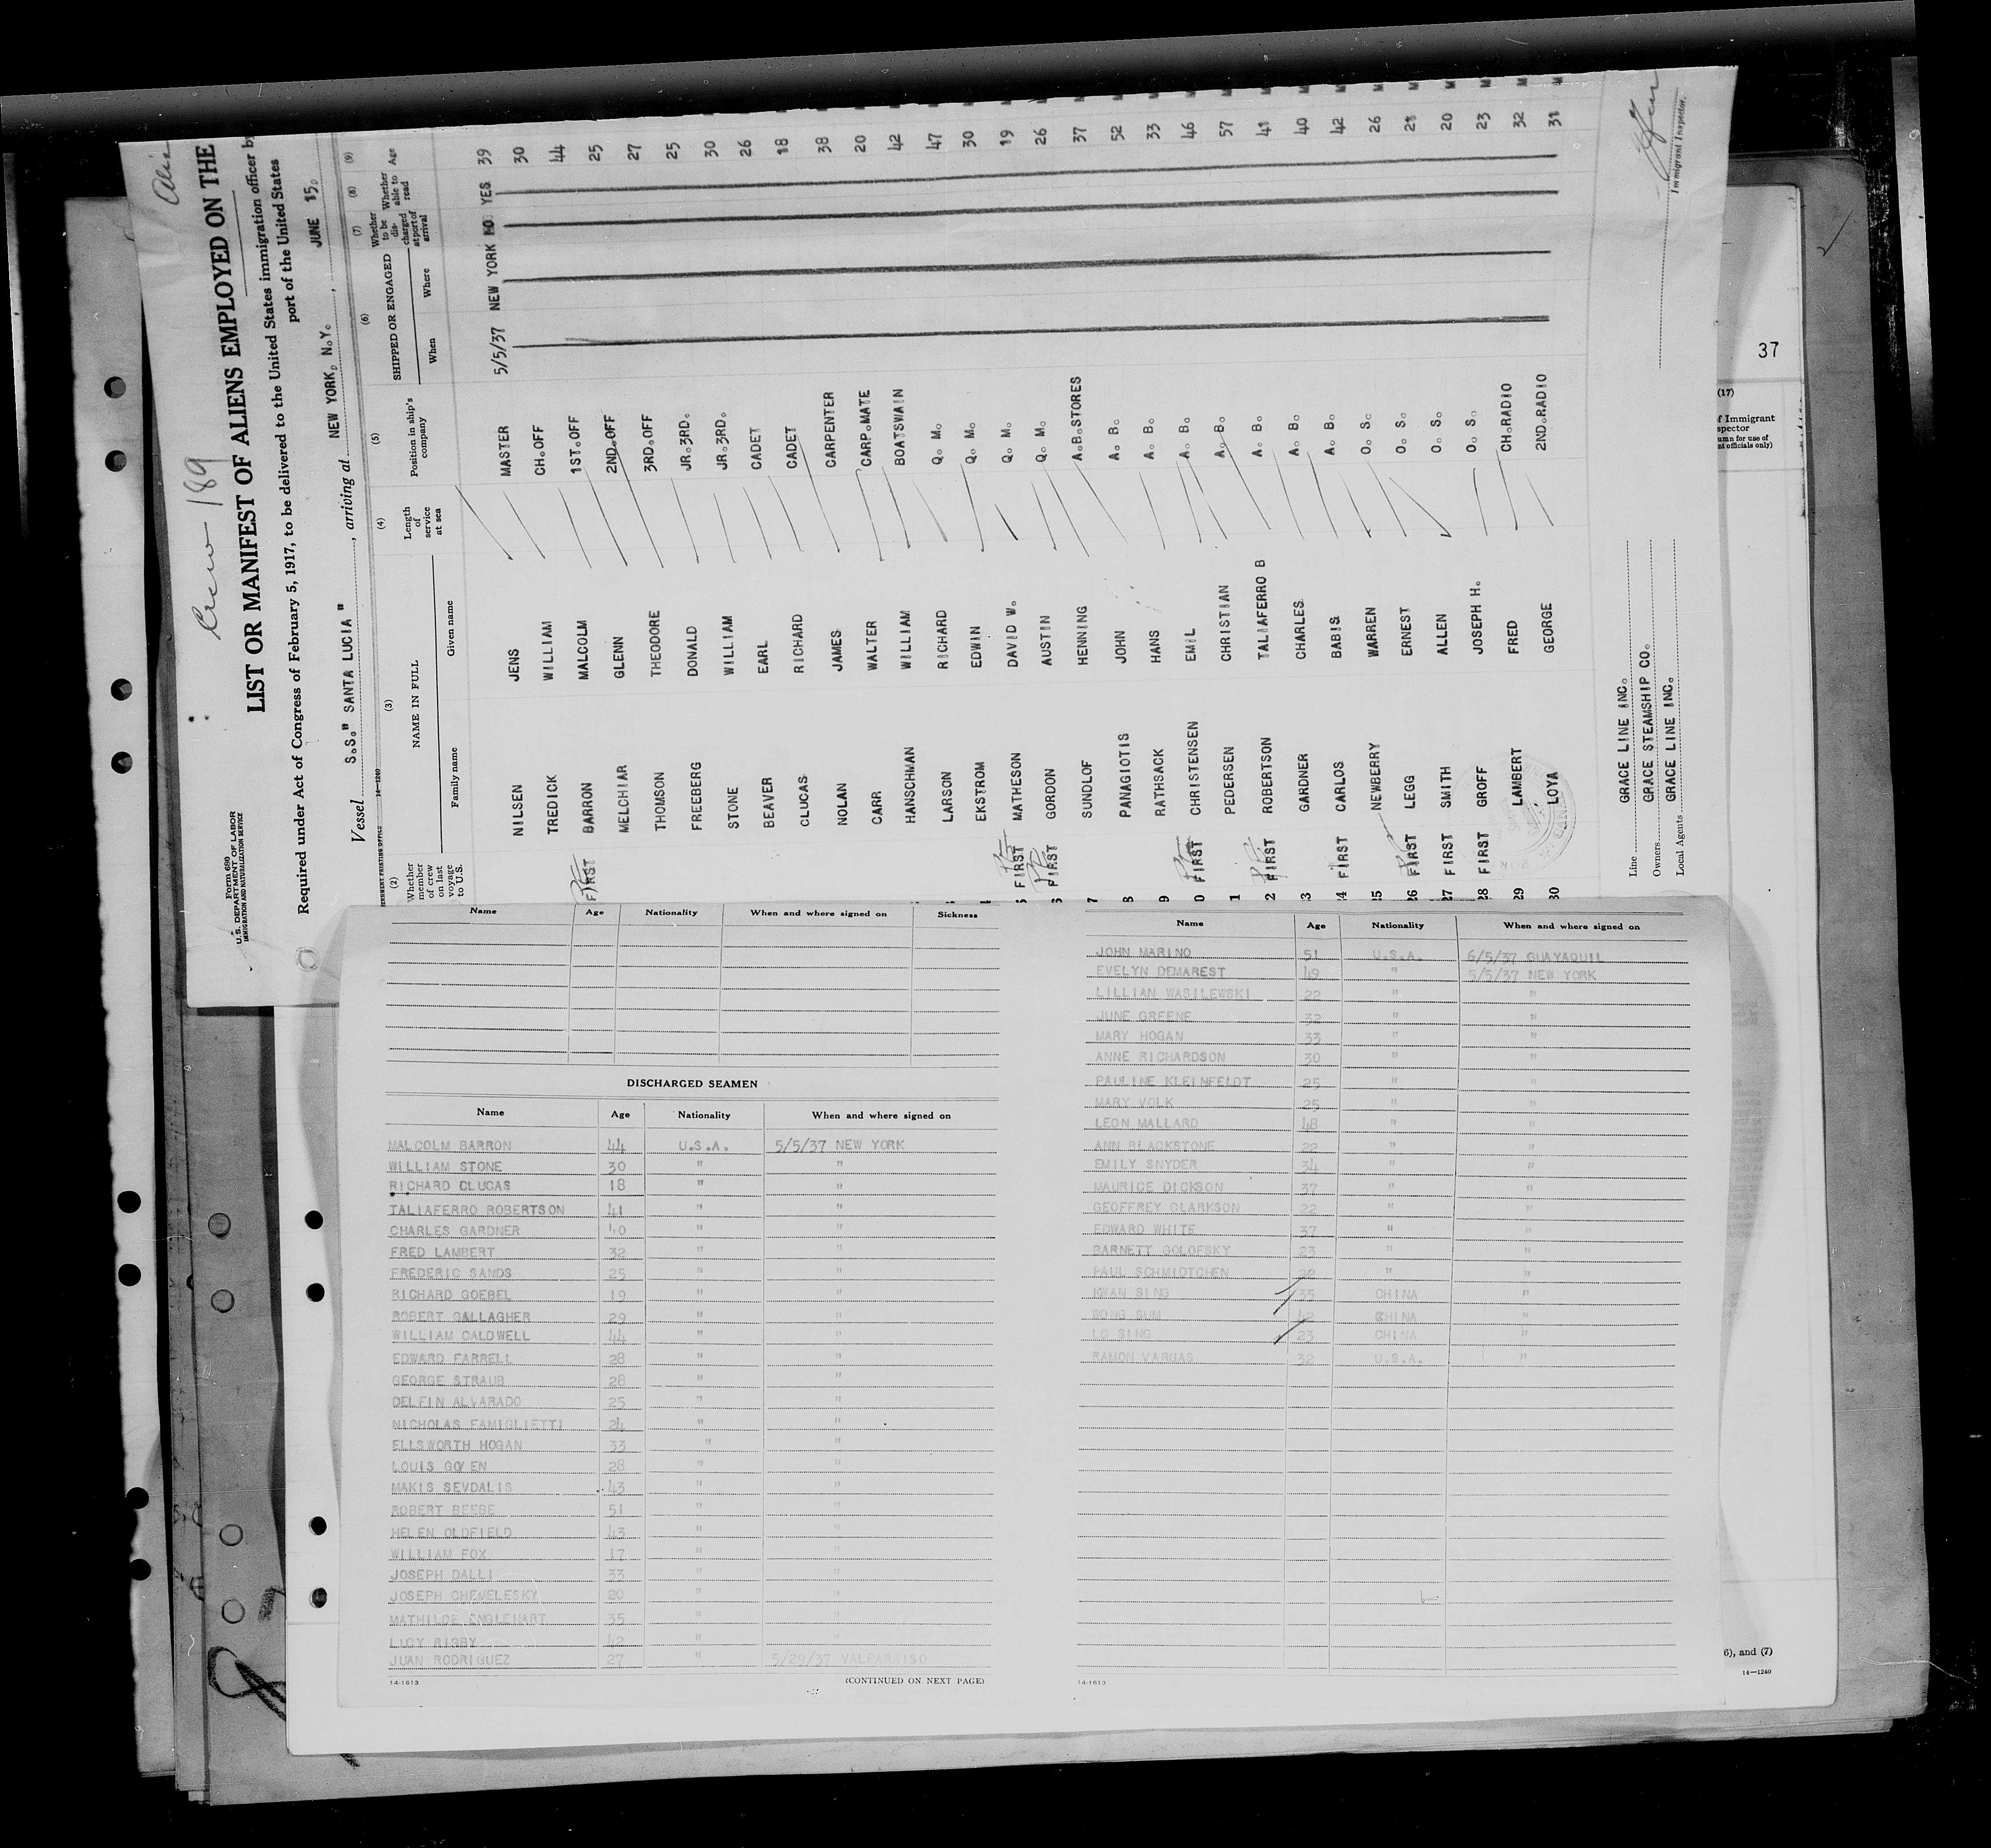 Crew 189
Form 680
U.S. DEPARTMENT OF LABOR
IMMIGRATION AND NATURALIZATION SERVICE
LIST OR MANIFEST OF ALIENS EMPLOYED ON THE
Required under Act of Congress of February 5, 1917, to be delivered to the United States immigration officer by
port of the United States
Vessel S.S." SANTA LUCIA ", arriving at NEW YORK, N.Y., JUNE 15,
14-1240
(2) (3) (4) (5) (6) (7) (8) (9)
Whether member of crew on last voyage to U.S. NAME IN FULL Family name Given name Length of service at sea Position in ship's company SHIPPED OR ENGAGED When Where Whether to be discharged at port of arrival Whether able to read Age
NILSEN JENS MASTER 5/5/37 NEW YORK NO YES 39
TREDICK WILLIAM CH.OFF 30
FIRST BARRON MALCOLM 1ST.OFF 44
MELCHIAR GLENN 2ND.OFF 25
THOMSON THEODORE 3RD.OFF 27
FREEBERG DONALD JR.3RD. 25
STONE WILLIAM JR.3RD. 30
BEAVER EARL CADET 26
CLUCAS RICHARD CADET 18
NOLAN JAMES CARPENTER 38
CARR WALTER CARP.MATE 20
HANSCHMAN WILLIAM BOATSWAIN 42
LARSON RICHARD Q. M. 47
EKSTROM EDWIN Q. M. 30
FIRST MATHESON DAVID W. Q. M. 19
FIRST GORDON AUSTIN Q. M. 26
7 SUNDLOF HENNING A.B.STORES 37
8 PANAGIOTIS JOHN A. B. 52
9 RATHSACK HANS A. B. 33
0 FIRST CHRISTENSEN EMIL A. B. 46
1 PEDERSEN CHRISTIAN A. B. 57
2 FIRST ROBERTSON TALIAFERRO B A. B. 41
3 GARDNER CHARLES A. B. 40
4 FIRST CARLOS BABIS A. B. 42
5 NEWBERRY WARREN O. S. 26
26 FIRST LEGG ERNEST O. S. 21
27 FIRST SMITH ALLEN O. S. 20
28 FIRST GROFF JOSEPH H. O. S. 23
29 LAMBERT FRED CH.RADIO 32
30 LOYA GEORGE 2ND.RADIO 31
Line GRACE LINE INC.
Owners GRACE STEAMSHIP CO.
Local Agents GRACE LINE INC.
Immigrant Inspector.
37
(17)
f Immigrant
spector
umn for use of
nt officials only)
6), and (7)
14—1240
Name Age Nationality When and where signed on Sickness
DISCHARGED SEAMEN
Name Age Nationality When and where signed on
MALCOLM BARRON 44 U.S.A. 5/5/37 NEW YORK
WILLIAM STONE 30 " "
RICHARD CLUCAS 18 " "
TALIAFERRO ROBERTSON 41 " "
CHARLES GARDNER 40 " "
FRED LAMBERT 32 " "
FREDERIC SANDS 25 " "
RICHARD GOEBEL 19 " "
ROBERT GALLAGHER 29 " "
WILLIAM CALDWELL 44 " "
EDWARD FARRELL 28 " "
GEORGE STRAUB 28 " "
DELFIN ALVARADO 25 " "
NICHOLAS FAMIGLIETTI 24 " "
ELLSWORTH HOGAN 33 " "
LOUIS GOVEN 28 " "
MAKIS SEVDALIS 43 " "
ROBERT BEEBE 51 " "
HELEN OLDFIELD 43 " "
WILLIAM FOX 17 " "
JOSEPH DALLI 33 " "
JOSEPH CHEMELESKY 20 " "
MATHILDE ENGLEHART 35 " "
LUCY RIGBY 42 " "
JUAN RODRIGUEZ 27 " 5/29/37 VALPARAISO
14-1613
(CONTINUED ON NEXT PAGE)
Name Age Nationality When and where signed on
JOHN MARINO 51 U.S.A. 6/5/37 GUAYAQUIL
EVELYN DEMAREST 49 " 5/5/37 NEW YORK
LILLIAN WASILEWSKI 22 " "
JUNE GREENE 32 " "
MARY HOGAN 33 " "
ANNE RICHARDSON 30 " "
PAULINE KLEINFELDT 25 " "
MARY VOLK 25 " "
LEON MALLARD 48 " "
ANN BLACKSTONE 22 " "
EMILY SNYDER 34 " "
MAURICE DICKSON 37 " "
GEOFFREY CLARKSON 22 " "
EDWARD WHITE 37 " "
BARNETT GOLOFSKY 23 " "
PAUL SCHMIDTCHEN 22 " "
KWAN SING 35 CHINA "
WONG SUM 42 CHINA "
LO SING 23 CHINA "
RAMON VARGAS 32 U.S.A. "
14-1613